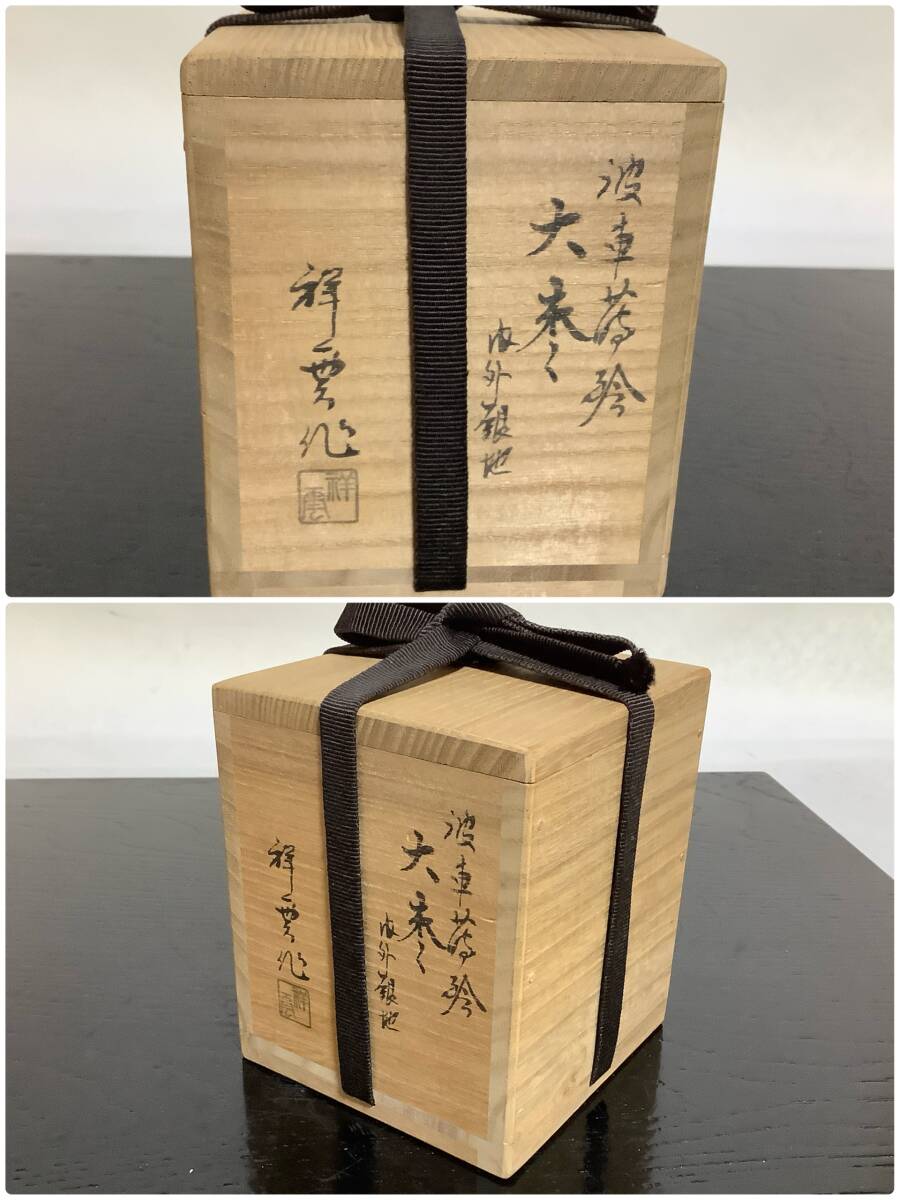 波車蒔絵
大棗
内外銀地
祥雲作
祥雲
波車蒔絵
大棗
内外銀地
祥雲作
祥雲